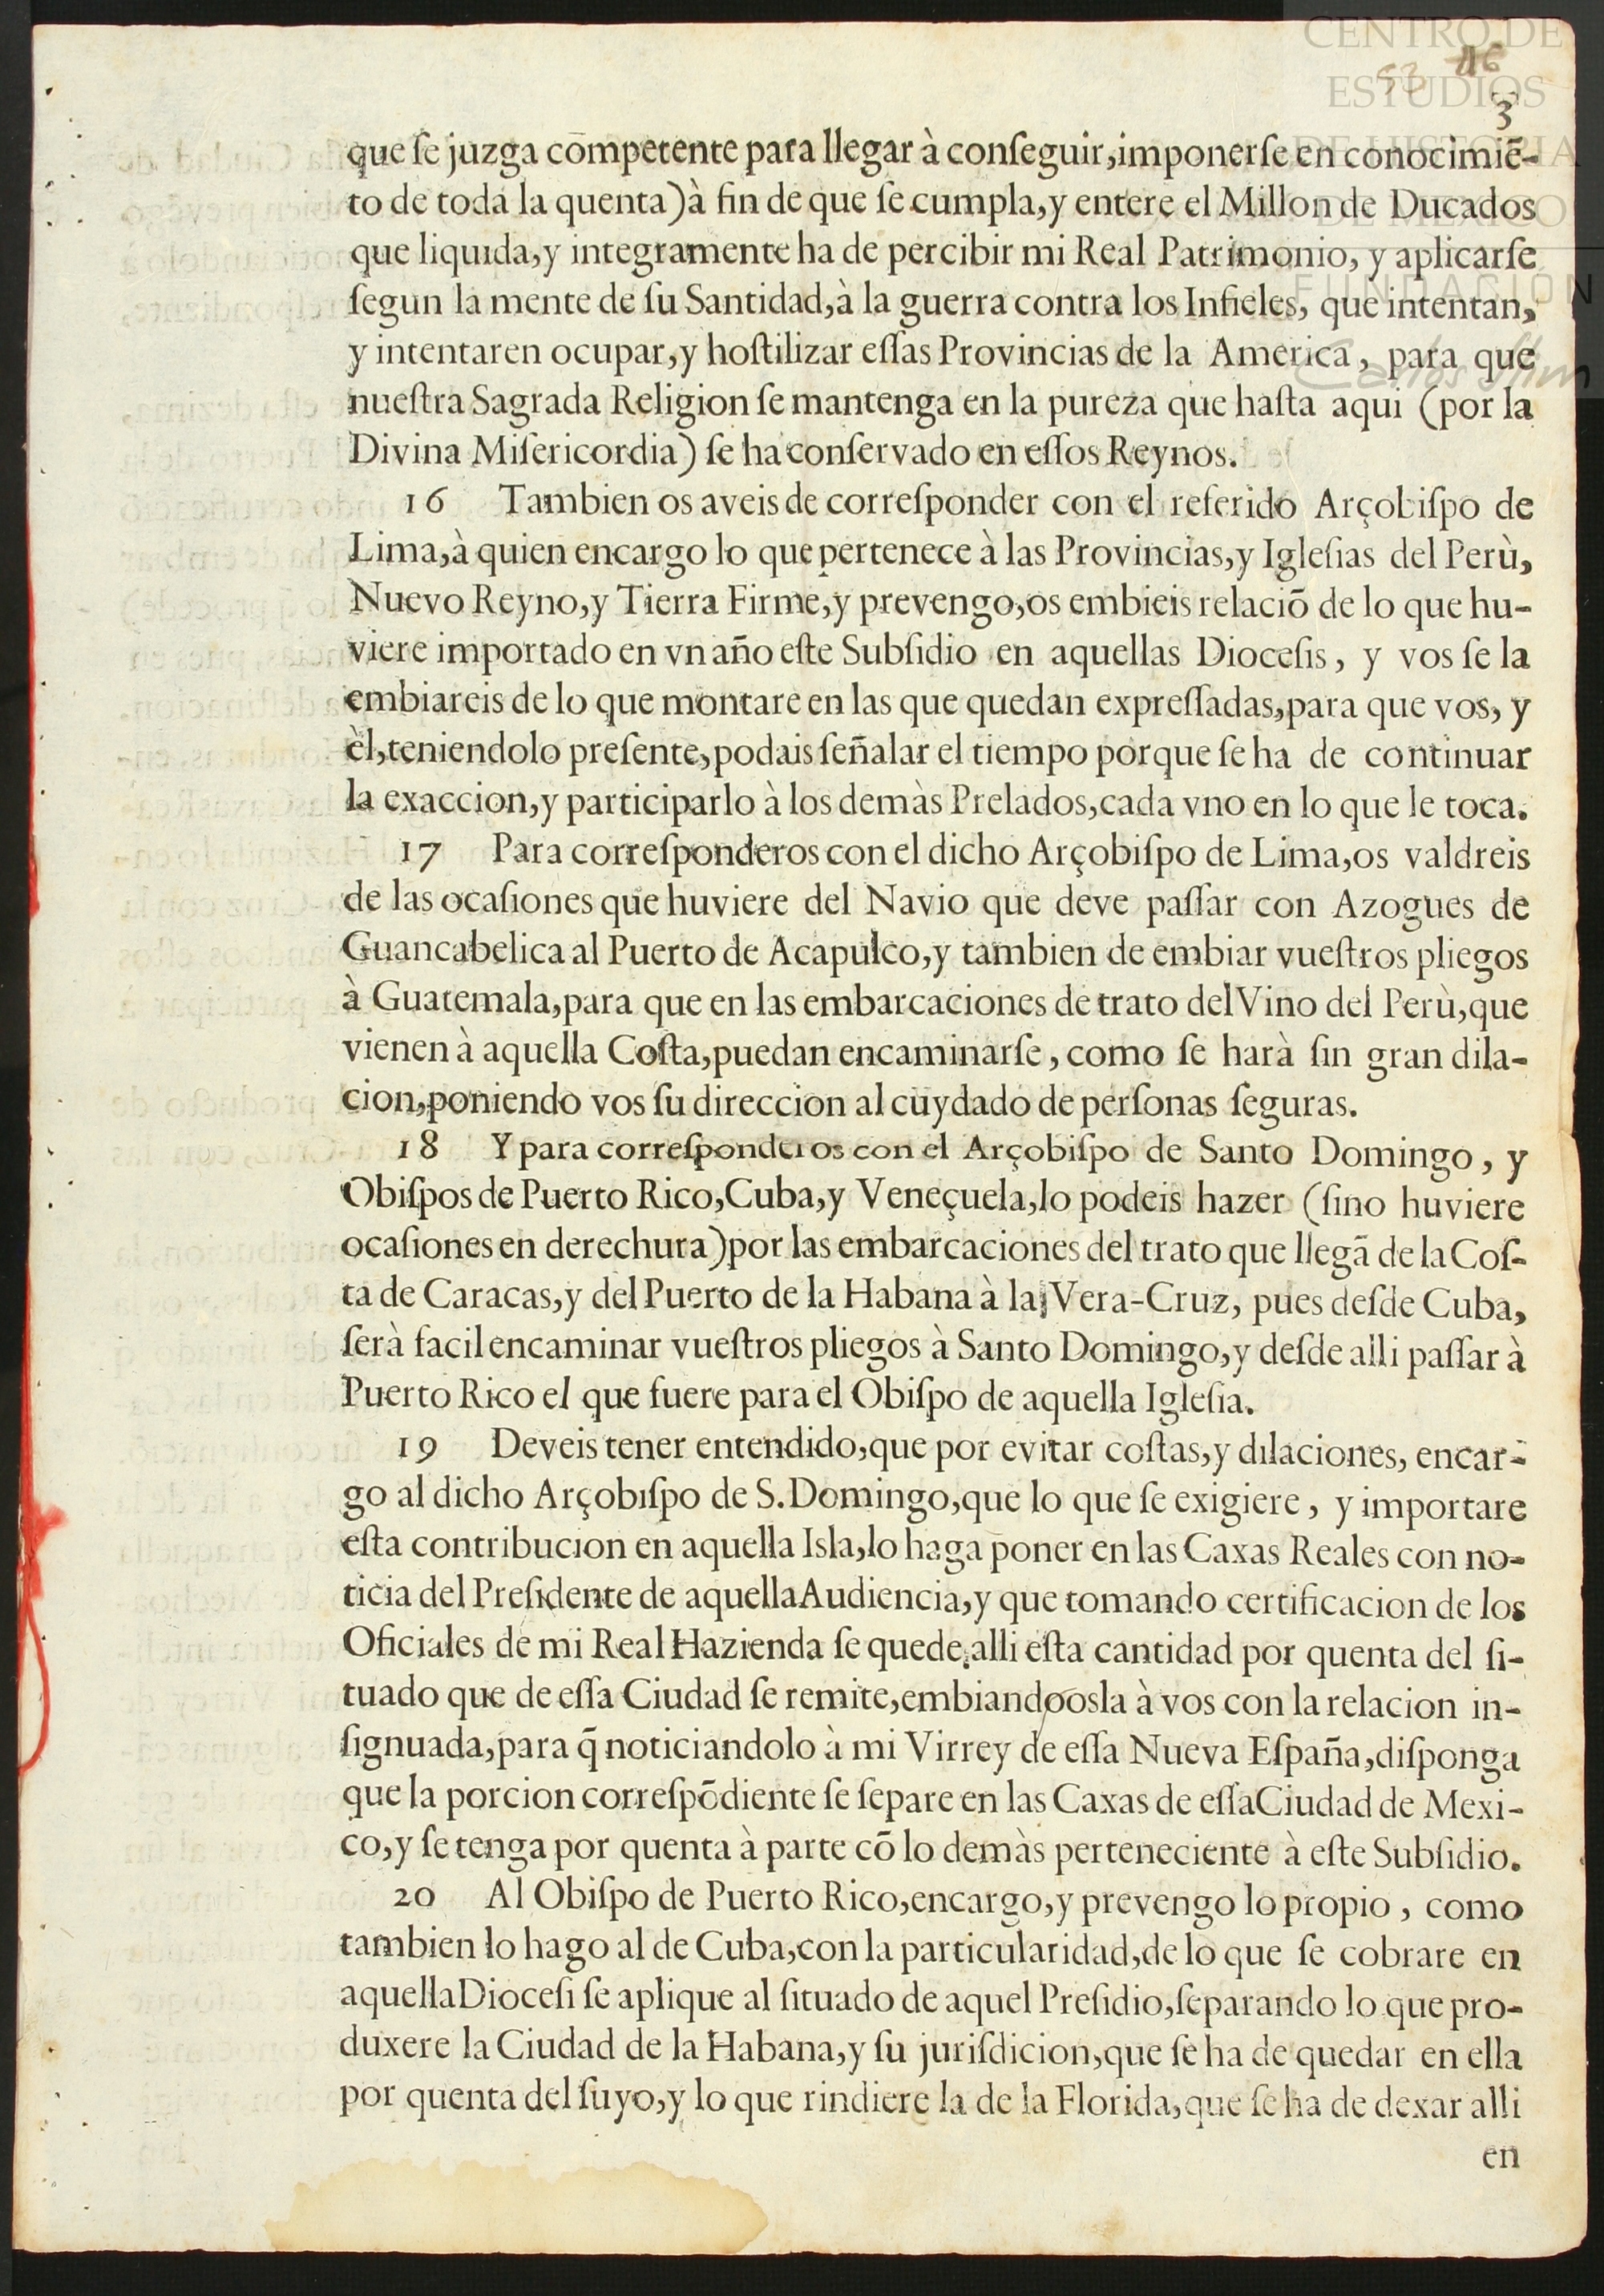 CENTRO DE
ESTUDIOS
DE HISTORIA
DE MEXICO
FUNDACIÓN
Carlos Slim
3
que ſe juzga cōmpetente para llegar à conſeguir,imponerſe en conocimiē-
to de toda la quenta)à fin de que ſe cumpla,y entere el Millon de Ducados
que liquida,y integramente ha de percibir mi Real Patrimonio, y aplicarſe
ſegun la mente de ſu Santidad,à la guerra contra los Infieles, que intentan,
y intentaren ocupar,y hoſtilizar eſſas Provincias de la America, para que
nueſtra Sagrada Religion ſe mantenga en la pureza que haſta aqui (por la
Divina Miſericordia) ſe ha conſervado en eſſos Reynos.
16 Tambien os aveis de correſponder con el referido Arçobiſpo de
Lima,à quien encargo lo que pertenece à las Provincias,y Igleſias del Perù,
Nuevo Reyno,y Tierra Firme,y prevengo,os embieis relaciō de lo que hu-
viere importado en vn año eſte Subſidio en aquellas Dioceſis, y vos ſe la
embiareis de lo que montare en las que quedan expreſſadas,para que vos, y
èl,teniendolo preſente,podais ſeñalar el tiempo porque ſe ha de continuar
la exaccion,y participarlo à los demàs Prelados,cada vno en lo que le toca.
17 Para correſponderos con el dicho Arçobiſpo de Lima,os valdreis
de las ocaſiones que huviere del Navio que deve paſſar con Azogues de
Guancabelica al Puerto de Acapulco,y tambien de embiar vueſtros pliegos
à Guatemala,para que en las embarcaciones de trato del Vino del Perù,que
vienen à aquella Coſta,puedan encaminarſe, como ſe harà ſin gran dila-
cion,poniendo vos ſu direccion al cuydado de perſonas ſeguras.
18 Y para correſponderos con el Arçobiſpo de Santo Domingo, y
Obiſpos de Puerto Rico,Cuba,y Veneçuela,lo podeis hazer (ſino huviere
ocaſiones en derechura)por las embarcaciones del trato que llegā de la Coſ-
ta de Caracas,y del Puerto de la Habana à la Vera-Cruz, pues deſde Cuba,
ſerà facil encaminar vueſtros pliegos à Santo Domingo,y deſde alli paſſar à
Puerto Rico el que fuere para el Obiſpo de aquella Igleſia.
19 Deveis tener entendido,que por evitar coſtas,y dilaciones, encar-
go al dicho Arçobiſpo de S.Domingo,que lo que ſe exigiere, y importare
eſta contribucion en aquella Isla,lo haga poner en las Caxas Reales con no-
ticia del Preſidente de aquella Audiencia,y que tomando certificacion de los
Oficiales de mi Real Hazienda ſe quede alli eſta cantidad por quenta del ſi-
tuado que de eſſa Ciudad ſe remite,embiandoosla à vos con la relacion in-
ſignuada,para q̄ noticiandolo à mi Virrey de eſſa Nueva Eſpaña,diſponga
que la porcion correſpōdiente ſe ſepare en las Caxas de eſſa Ciudad de Mexi-
co,y ſe tenga por quenta à parte cō lo demàs perteneciente à eſte Subſidio.
20 Al Obiſpo de Puerto Rico,encargo,y prevengo lo propio, como
tambien lo hago al de Cuba,con la particularidad,de lo que ſe cobrare en
aquella Dioceſi ſe aplique al ſituado de aquel Preſidio,ſeparando lo que pro-
duxere la Ciudad de la Habana,y ſu juriſdicion,que ſe ha de quedar en ella
por quenta del ſuyo,y lo que rindiere la de la Florida,que ſe ha de dexar alli
en